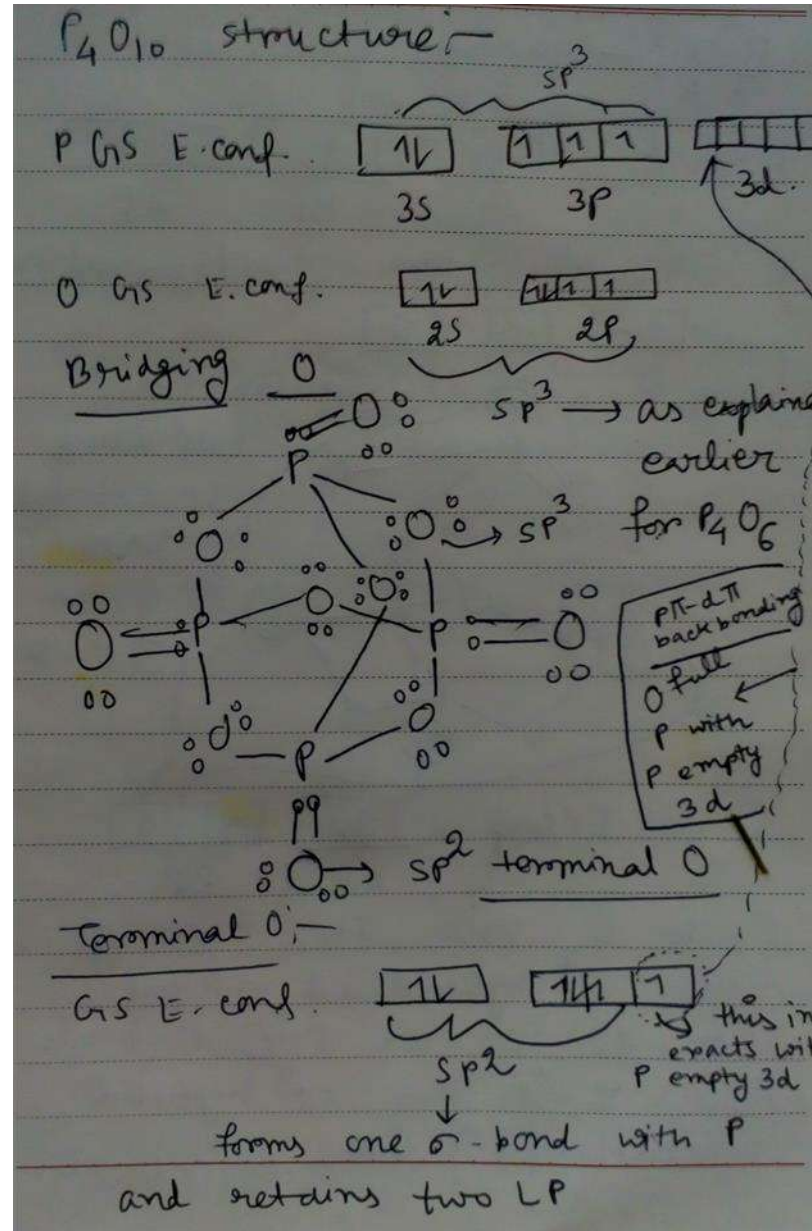 P4O10 structure:-
sp3
P GS E.conf. 1L 1 1 1
3S 3P 3d.
O GS E.conf. 1L 1L 1 1
2S 2P
Bridging O
sp3 → as explaine
earlier
for P4O6
O
P
O O → sp3
O O
O P P O
O O
P
O → sp2 terminal O
pπ-dπ
back bonding
O full
P with
P empty
3d
Terminal O:-
GS E. conf. 1L 1
sp2
this in
eracts wit
P empty 3d
forms one σ-bond with P
and retains two LP